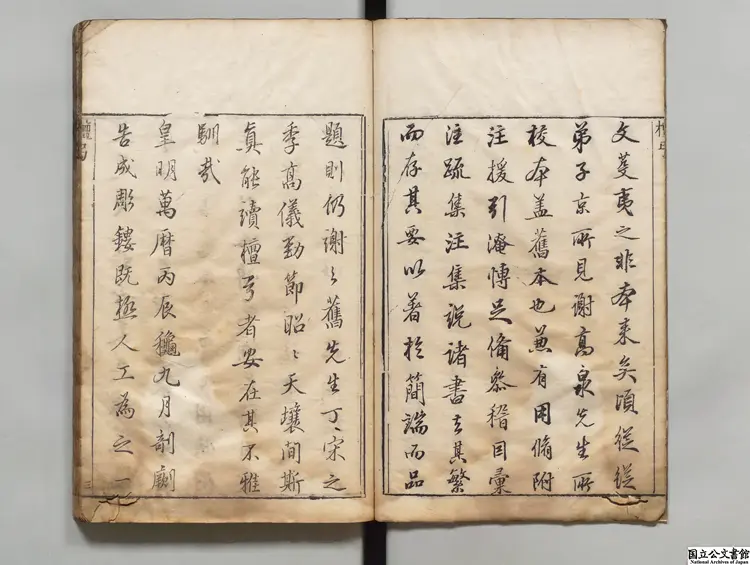 檀弓
文芟夷之非本來矣頃從從
弟子京所見謝高泉先生所
校本盖舊本也兼有用脩附
注援引淹博足備叅稽因彙
注疏集注集說諸書去其繁
而存其要以著於簡端而品
題則仍謝〻舊先生丁宋之
季高儀勁節昭〻天壤間斯
真能讀檀弓者安在其不雅
馴哉
皇明萬曆丙辰龝九月剞劂
告成彫鏤既極人工為之一
檀弓
三
国立公文書館
National Archives of Japan